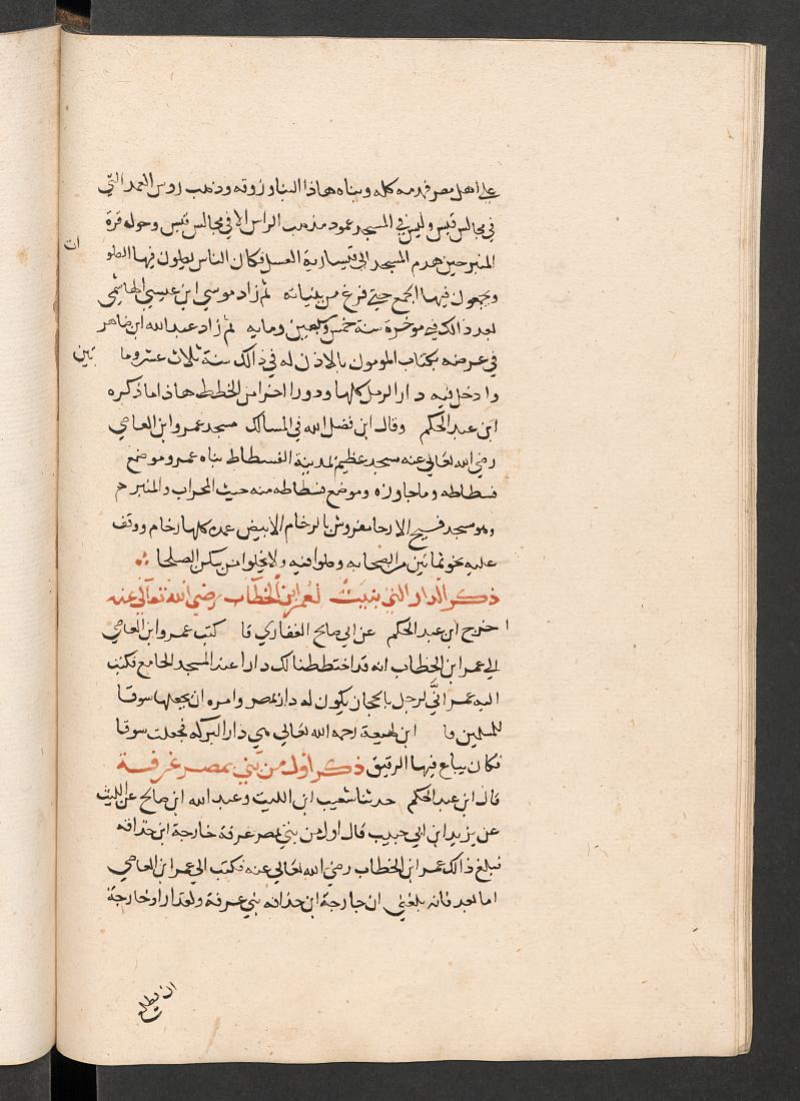 على اهل مصر فهدمه كله وبناه هاذا البنا وزوقه وذهب روس العمد التي
في مجالس قيس وليس في المسجد عمود مذهب الراس الا في مجالس قيس وحول قرة
المنبر حين هدم المسجد الى قيسارية العسل فكان الناس يصلون فيها الصلو
ات
ويجمعون فيها الجمع حتي فرغ من بنيانه ثم زاد موسي ابن عيسي الهاشمي
بعد ذالك في موخره سنة خمس وسبعين ومايه ثم زاد عبد الله ابن طاهر
في عرضه بكتاب المومون بالاذن له في ذالك سنة ثلاث عشر وما
تين
وادخل فيه دار الرمل كلها ودورا اخرا من الخطط هاذا ما ذكره
ابن عبد الحكم وقال ابن فضل الله في المسالك مسجد عمرو ابن العاصي
رضي الله تعالي عنه مسجد عظيم بمدينة الفسطاط بناه عمرو موضع
فسطاطه وما جاوره وموضع فسطاطه منه حيث المحراب والمنبر
وهو مسجد فسيح الارجا مفروش بالرخام الابيض عمده كلها رخام ووقف
عليه نحو ثمانين من الصحابه وصلوا فيه ولا يخلوا من سكن الصلحا
ذكر الدار التي بنيت لعمر ابن الخطاب رضي الله تعالى عنه
اخرج ابن عبد الحكم عن ابي صالح الغفاري قا كتب عمرو ابن العاصي
الي عمر ابن الخطاب انه قد اختططنا لك دارا عند المسجد الجامع فكتب
اليه عمر انّي لرجل بالحجاز يكون له دار بمصر وامره ان يجعلها سوقا
للمسلمين قا ابن لهيعة رحمه الله تعالي هي دار البركه فجعلت سوقا
فكان يباع فيها الرقيق ذكر اول من بني بمصر غرفة
قال ابن عبد الحكم حدثنا شعيب ابن الليث وعبد الله ابن صالح عن الليث
عن يزيد ابن ابي حبيب قال اول من بني بمصر غرفة خارجة ابن حذافه
فبلغ ذالك عمر ابن الخطاب رضي الله تعالي عنه فكتب الي عمر ابن العاصي
اما بعد فانه بلغني ان خارجة ابن حذافه بني غرفة ولقد اراد خارجة
ان يطلع